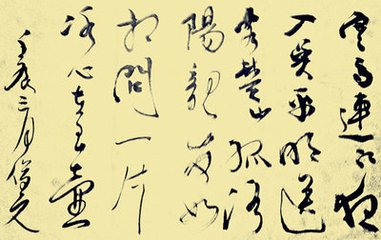 寒雨連江夜
入吳平明送
客楚山孤洛
陽親友如
相問一片
冰心在玉壺
三月